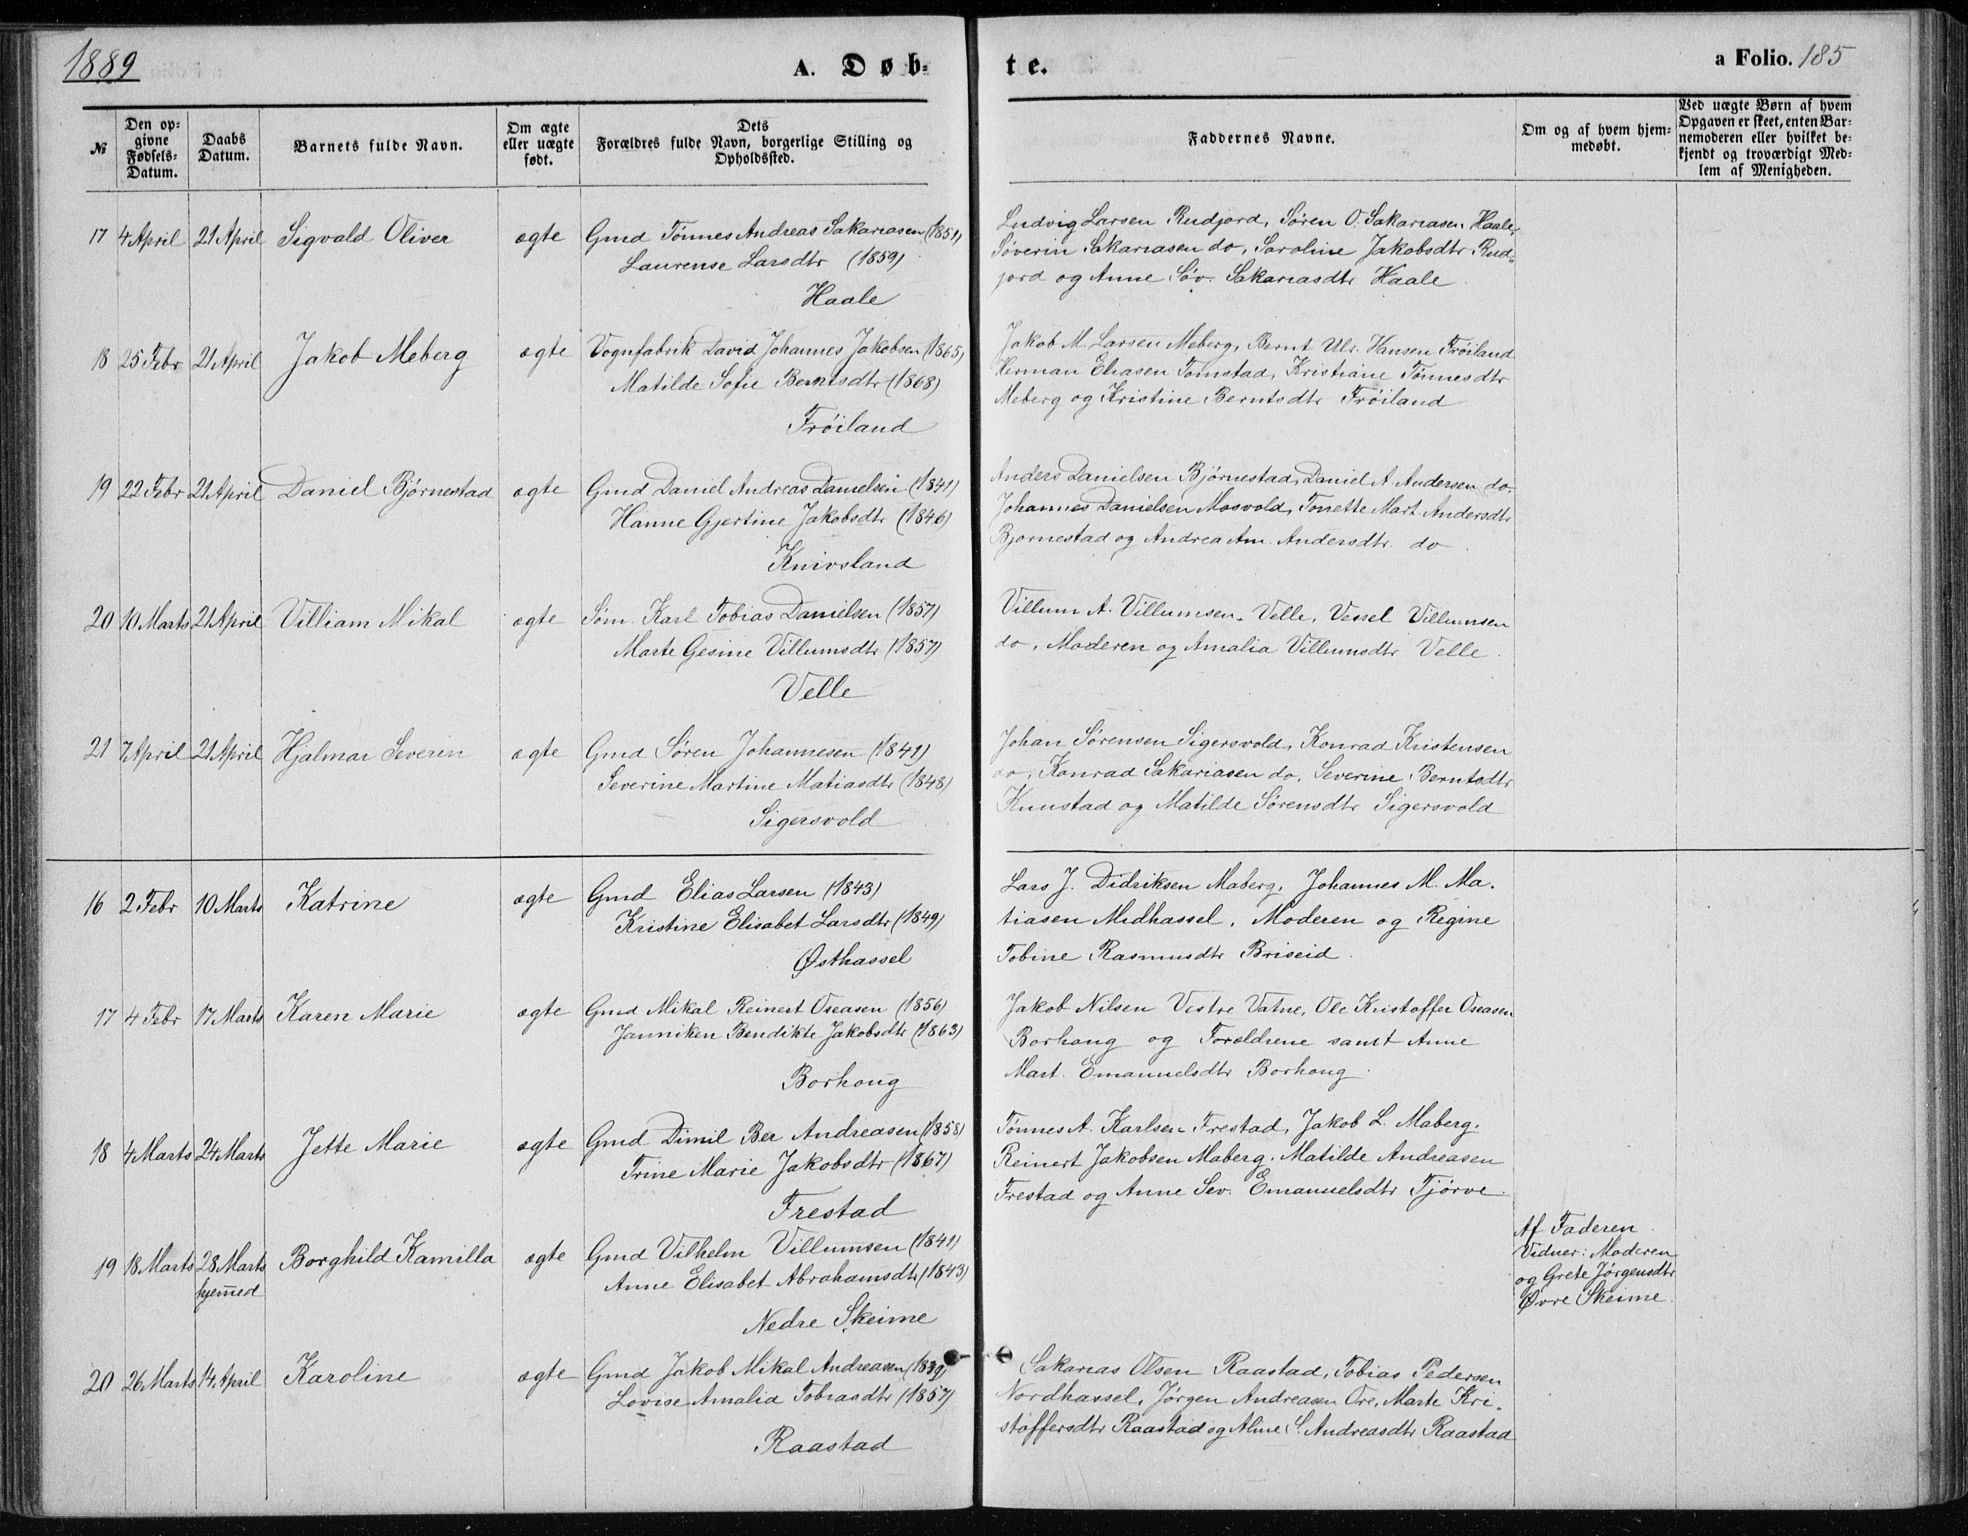 1889
A. Døb-
te.
a Folio. 185
№
Den op-
givne
Fødsels-
Datum.
Daabs
Datum.
Barnets fulde Navn.
Om ægte
eller uægte
født.
Dets
Forældres fulde Navn, borgerlige Stilling og
Opholdssted.
Faddernes Navne.
Om og af hvem hjem-
medøbt.
Ved uægte Børn af hvem
Opgaven er skeet, enten Bar-
nemoderen eller hvilket be-
kjendt og troværdigt Med-
lem af Menigheden.
17 4 April 21 April Sigvald Oliver ægte Gmd Tönnes Andreas Sakariasen (1851)
Laurense Larsdtr (1859)
Haale
Ludvig Larsen Rudjord, Søren O. Sakariasen Haale,
Søverin Sakariasen do, Saroline Jakobsdtr Rud„
jord og Anne Söv. Sakariasdtr Haale
18 25 Febr 21 April Jakob Meberg ægte Vognfabrik David Johannes Jakobsen (1865)
Matilde Sofie Berntsdtr (1868)
Fröiland
Jakob M. Larsen Meberg, Bernt Ulr. Hansen Fröiland
Herman Eliasen Tomstad, Kristiane Tönnesdtr
Meberg og Kristine Berntsdtr Fröiland
19 22 Febr 21 April Daniel Bjørnestad ægte Gmd Daniel Andreas Danielsen (1841)
Hanne Gjertine Jakobsdtr (1846)
Knivsland
Anders Danielsen Bjørnestad, Daniel A Andersen do,
Johannes Danielsen Mosvold, Tonette Mart Andersdtr
Bjornestad og Andrea Am. Andersdtr. do
20 10 Marts 21 April Villiam Mikal ægte Søm. Karl Tobias Danielsen (1857)
Marte Gesine Villumsdtr (1857)
Velle
Villum A. Villumsen Velle, Vessel Villumsen
do, Moderen og Amalia Villumsdtr Velle.
21 7 April 21 April Hjalmar Severin ægte Gmd Søren Johannesen (1841)
Severine Martine Matiasdtr (1848)
Sigersvold
Johan Sørensen Sigersvold, Konrad Kristensen
do, Konrad Sakariasen do, Severine Berntsdtr
Kunstad og Matilde Sørensdtr Sigersvold
16 2 Febr 10 Marts Katrine ægte Gmd Elias Larsen (1843)
Kristine Elisabet Larsdtr (1849)
Østhassel
Lars J. Didriksen Maberg, Johannes M. Ma-
tiasen Midhassel, Moderen og Regine
Tobine Rasmusdtr Briseid.
17 4 Febr 17 Marts Karen Marie ægte Gmd Mikal Reinert Oseasen (1856)
Janniken Bendikte Jakobsdtr (1863)
Borhoug
Jakob Nilsen Vestre Vatne, Ole Kristoffer Oseasen
Borhoug og Forældrene samt Anne
Mart. Emanuelsdtr Borhoug.
18 4 Marts 24 Marts Jette Marie ægte Gmd Dimil Ber Andreasen (1858)
Trine Marie Jakobsdtr (1867)
Frestad
Tönnes A. Karlsen Frestad, Jakob L. Maberg.
Reinert Jakobsen Maberg. Matilde Andreasen
Frestad og Anne Sev. Emanuelsdtr Tjørve.
19 18 Marts 28 Marts Borghild Kamilla ægte Gmd Vilhelm Villumsen (1841)
hjemmed
Anne Elisabet Abrahamsdtr (1843)
Nedre Skeime
Af Faderen
Vidner: Moderen
og Grete Jørgensdtr
Øvre Skeime.
20 26 Marts 14 April Karoline ægte Gmd Jakob Mikal Andreasen (1839)
Lovise Amalia Tobiasdtr (1857)
Raastad
Sakarias Olsen Raastad, Tobias Pedersen
Nordhassel, Jørgen Andreasen Ore, Marte Kri-
stoffersdtr Raastad og Aline S. Andreasdtr Raastad